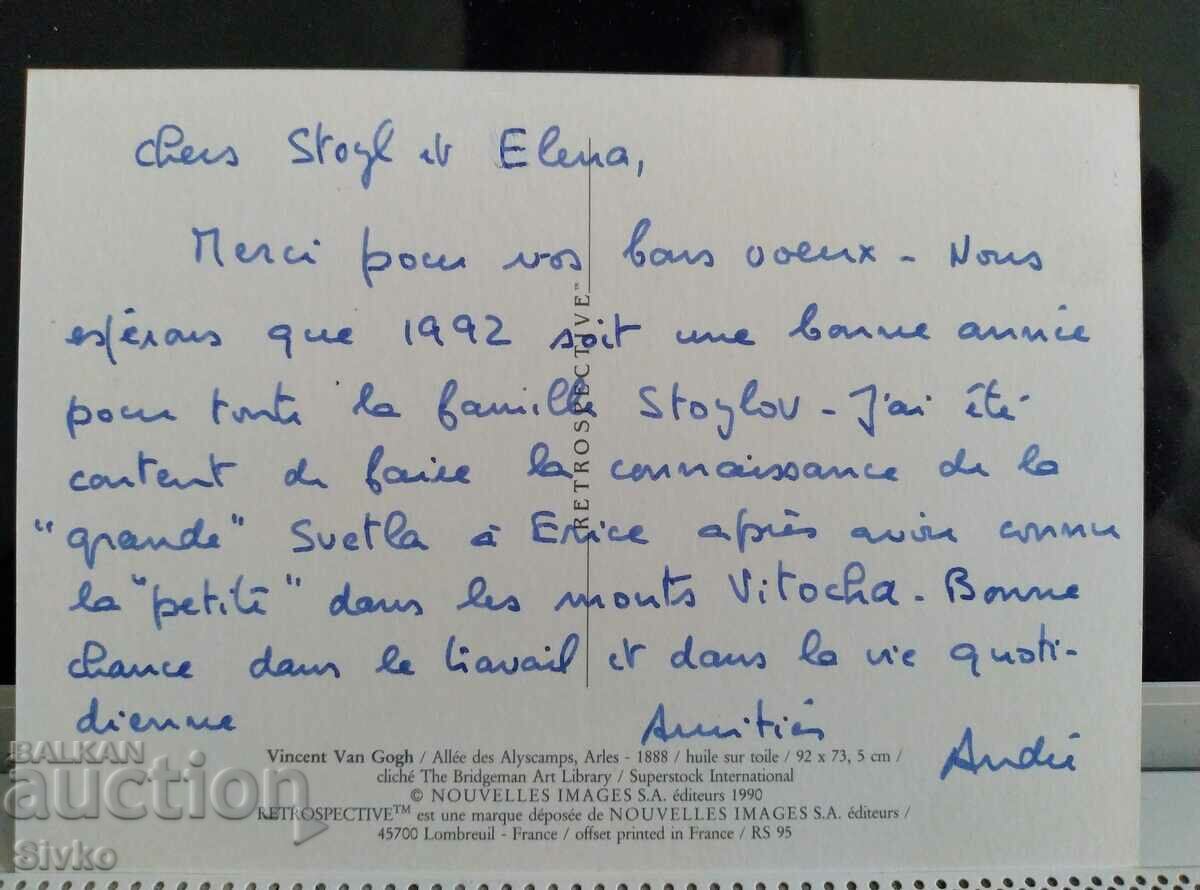 Chers Stoyl et Elena,
Merci pour vos bons voeux - Nous
espérons que 1992 soit une bonne année
pour toute la famille Stoylov - J'ai été
content de faire la connaissance de la
"grande" Svetla à Erice après avoir connu
la "petite" dans les monts Vitocha. Bonne
chance dans le travail et dans la vie quoti-
dienne
Amitiés
André
RETROSPECTIVE"
Vincent Van Gogh / Allée des Alyscamps, Arles - 1888 / huile sur toile / 92 x 73, 5 cm /
cliché The Bridgeman Art Library / Superstock International
© NOUVELLES IMAGES S.A. éditeurs 1990
RETROSPECTIVE™ est une marque déposée de NOUVELLES IMAGES S.A. éditeurs /
45700 Lombreuil - France / offset printed in France / RS 95
BALKAN
auction
Sivko